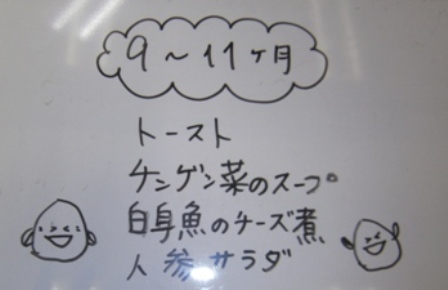 9～11ヶ月
トースト
チンゲン菜のスープ
白身魚のチーズ煮
人参サラダ